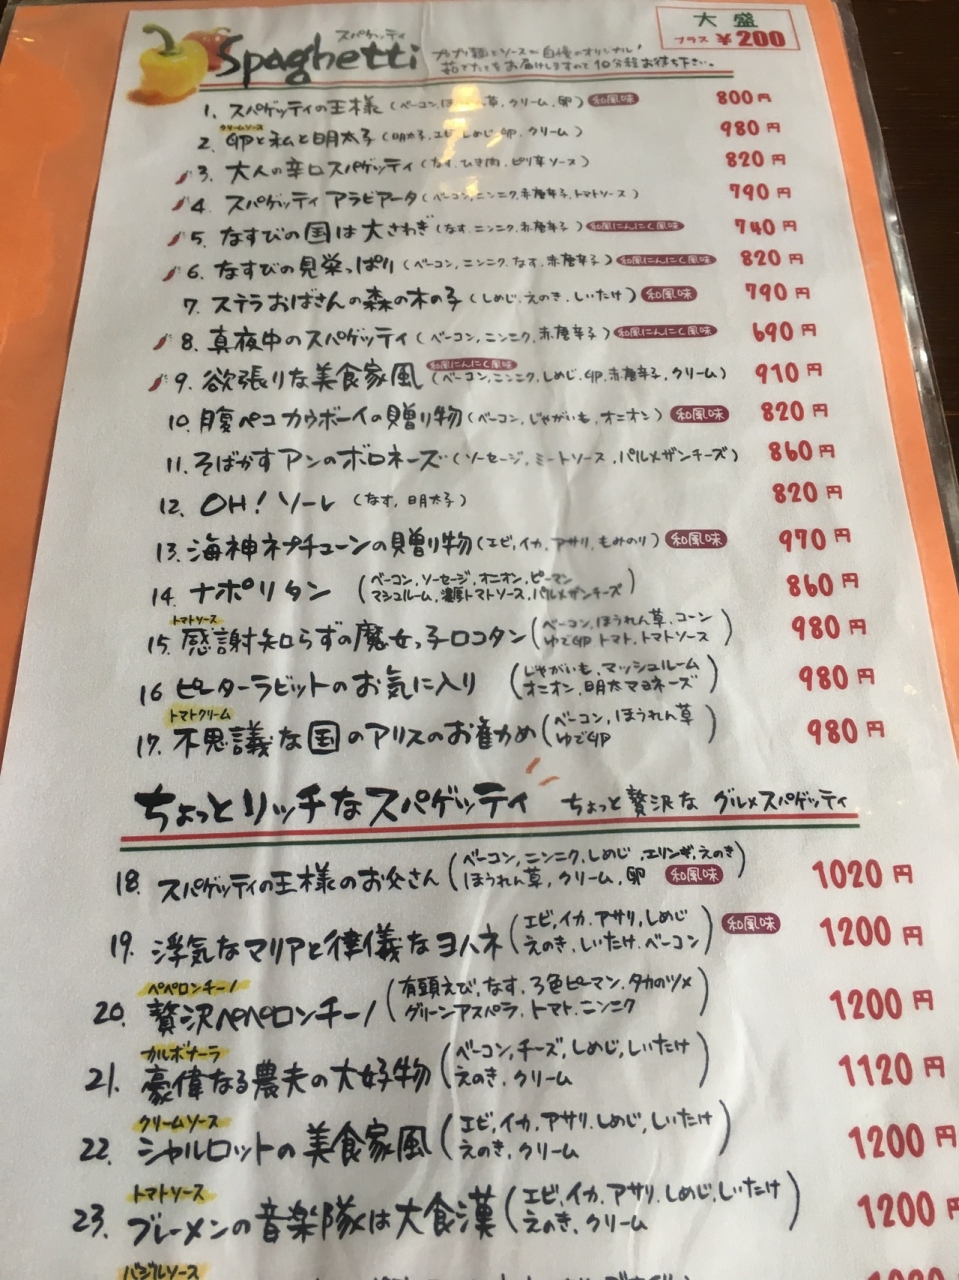 スパゲッティ
Spaghetti
プリプリ麺とソースが自慢のオリジナル!
茹でたてをお届けしますので10分程お待ち下さい。
大盛
プラス ¥200
1. スパゲッティの王様 (ベーコン,ほうれん草,クリーム,卵) 和風味 800円
クリームソース
2. 卵と私と明太子 (明太子,エビ,しめじ,卵,クリーム) 980円
3. 大人の辛口スパゲッティ (なす,ひき肉,ピリ辛ソース) 820円
4. スパゲッティ アラビアータ (ベーコン,ニンニク,赤唐辛子,トマトソース) 790円
5. なすびの国は大さわぎ (なす,ニンニク,赤唐辛子) 和風にんにく風味 740円
6. なすびの見栄っぱり (ベーコン,ニンニク,なす,赤唐辛子) 和風にんにく風味 820円
7. ステラおばさんの森の木の子 (しめじ,えのき,しいたけ) 和風味 790円
8. 真夜中のスパゲッティ (ベーコン,ニンニク,赤唐辛子) 和風にんにく風味 690円
和風にんにく風味
9. 欲張りな美食家風 (ベーコン,ニンニク,しめじ,卵,赤唐辛子,クリーム) 910円
10. 腹ペコ カウボーイの贈り物 (ベーコン,じゃがいも,オニオン) 和風味 820円
11. そばかすアンのボロネーズ (ソーセージ,ミートソース,パルメザンチーズ) 860円
12. OH! ソーレ (なす,明太子) 820円
13. 海神ネプチューンの贈り物 (エビ,イカ,アサリ,もみのり) 和風味 970円
14. ナポリタン (ベーコン,ソーセージ,オニオン,ピーマン
マシュルーム,濃厚トマトソース,パルメザンチーズ) 860円
トマトソース
15. 感謝知らずの魔女っ子ロコタン (ベーコン,ほうれん草,コーン
ゆで卵 トマト,トマトソース) 980円
16 ピーターラビットのお気に入り (じゃがいも,マッシュルーム
オニオン,明太マヨネーズ) 980円
トマトクリーム
17. 不思議な国のアリスのお勧め (ベーコン,ほうれん草
ゆで卵) 980円
ちょっとリッチなスパゲッティ ちょっと贅沢な グルメスパゲッティ
18. スパゲッティの王様のお父さん (ベーコン,ニンニク,しめじ,エリンギ,えのき
ほうれん草,クリーム,卵 和風味) 1020円
19. 浮気なマリアと律儀なヨハネ (エビ,イカ,アサリ,しめじ
えのき,しいたけ,ベーコン) 和風味 1200円
ペペロンチーノ
20. 贅沢ペペロンチーノ (有頭えび,なす,3色ピーマン,タカのツメ
グリーンアスペラ,トマト,ニンニク) 1200円
カルボナーラ
21. 豪偉なる農夫の大好物 (ベーコン,チーズ,しめじ,しいたけ
えのき,クリーム) 1120円
クリームソース
22. シャルロットの美食家風 (エビ,イカ,アサリ,しめじ,しいたけ
えのき,クリーム) 1200円
トマトソース
23. ブレーメンの音楽隊は大食漢 (エビ,イカ,アサリ,しめじ,しいたけ
えのき,クリーム) 1200円
バジルソース